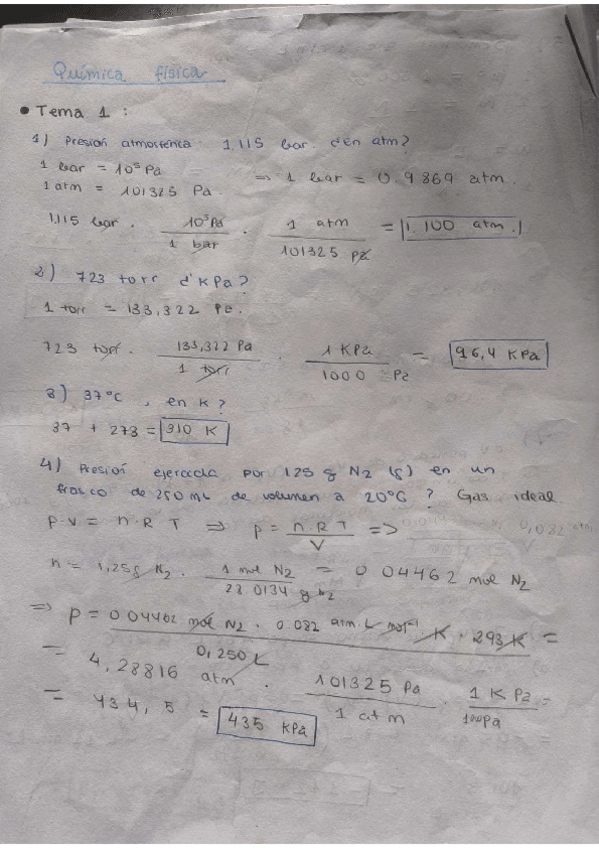 Química física
• Tema 1 :
1) Presión atmosférica 1,115 bar. ¿en atm?
1 bar = 10⁵ Pa
1 atm = 101325 Pa. ⇒ 1 bar = 0.9869 atm.
1,115 bar . 10⁵ Pa / 1 bar . 1 atm / 101325 Pa = 1.100 atm.
2) 723 torr ¿KPa?
1 torr = 133,322 Pa.
723 torr. 133,322 Pa / 1 torr . 1 KPa / 1000 Pa = 96,4 KPa
3) 37°C , en K ?
37 + 273 = 310 K
4) Presión ejercida por 1,25 g N2 (g) en un
frasco de 250 mL de volumen a 20°C ? Gas ideal
P.V = n.R T ⇒ p = n R T / V =>
n = 1,25g N2 . 1 mol N2 / 28.0134 g N2 = 0 04462 mol N2
⇒ p = 0 04462 mol N2 . 0.082 atm.L mol⁻¹ K . 293 K / 0,250 L =
= 4,28816 atm . 101325 Pa / 1 atm . 1 K Pa / 1000Pa =
= 434,5 = 435 KPa